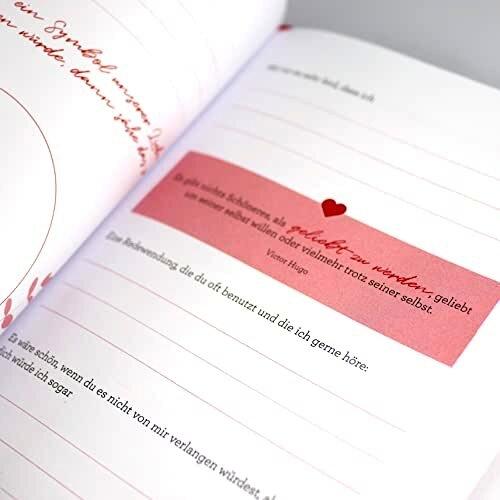 ein Symbol unserer
würde, dann sähe das
es tut mir sehr leid, dass ich
Es gibt nichts Schöneres, als geliebt zu werden, geliebt
um seiner selbst willen oder vielmehr trotz seiner selbst.
Victor Hugo
Eine Redewendung, die du oft benutzt und die ich gerne höre:
Es wäre schön, wenn du es nicht von mir verlangen würdest, a
dich würde ich sogar